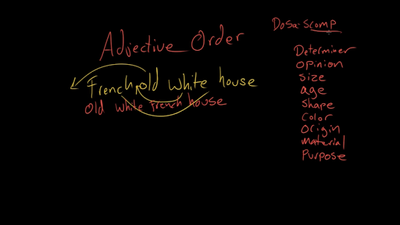 Dosa-scomp
Adjective Order
French old white house
Old white french house
Determiner
opinion
size
age
shape
color
origin
material
Purpose